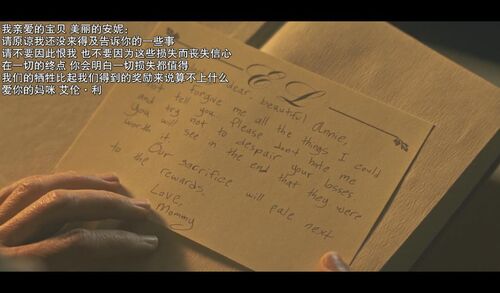 我亲爱的宝贝 美丽的安妮:
请原谅我还没来得及告诉你的一些事
请不要因此恨我 也不要因为这些损失而丧失信心
在一切的终点 你会明白一切损失都值得
我们的牺牲比起我们得到的奖励来说算不上什么
爱你的妈咪 艾伦·利
E L
dear, beautiful Annie,
forgive me all the things I could
not tell you. Please don't hate me
and try not to despair your losses
You will see in the end that they were
worth it
Our sacrifice will pale next
to the rewards.
Love,
Mommy